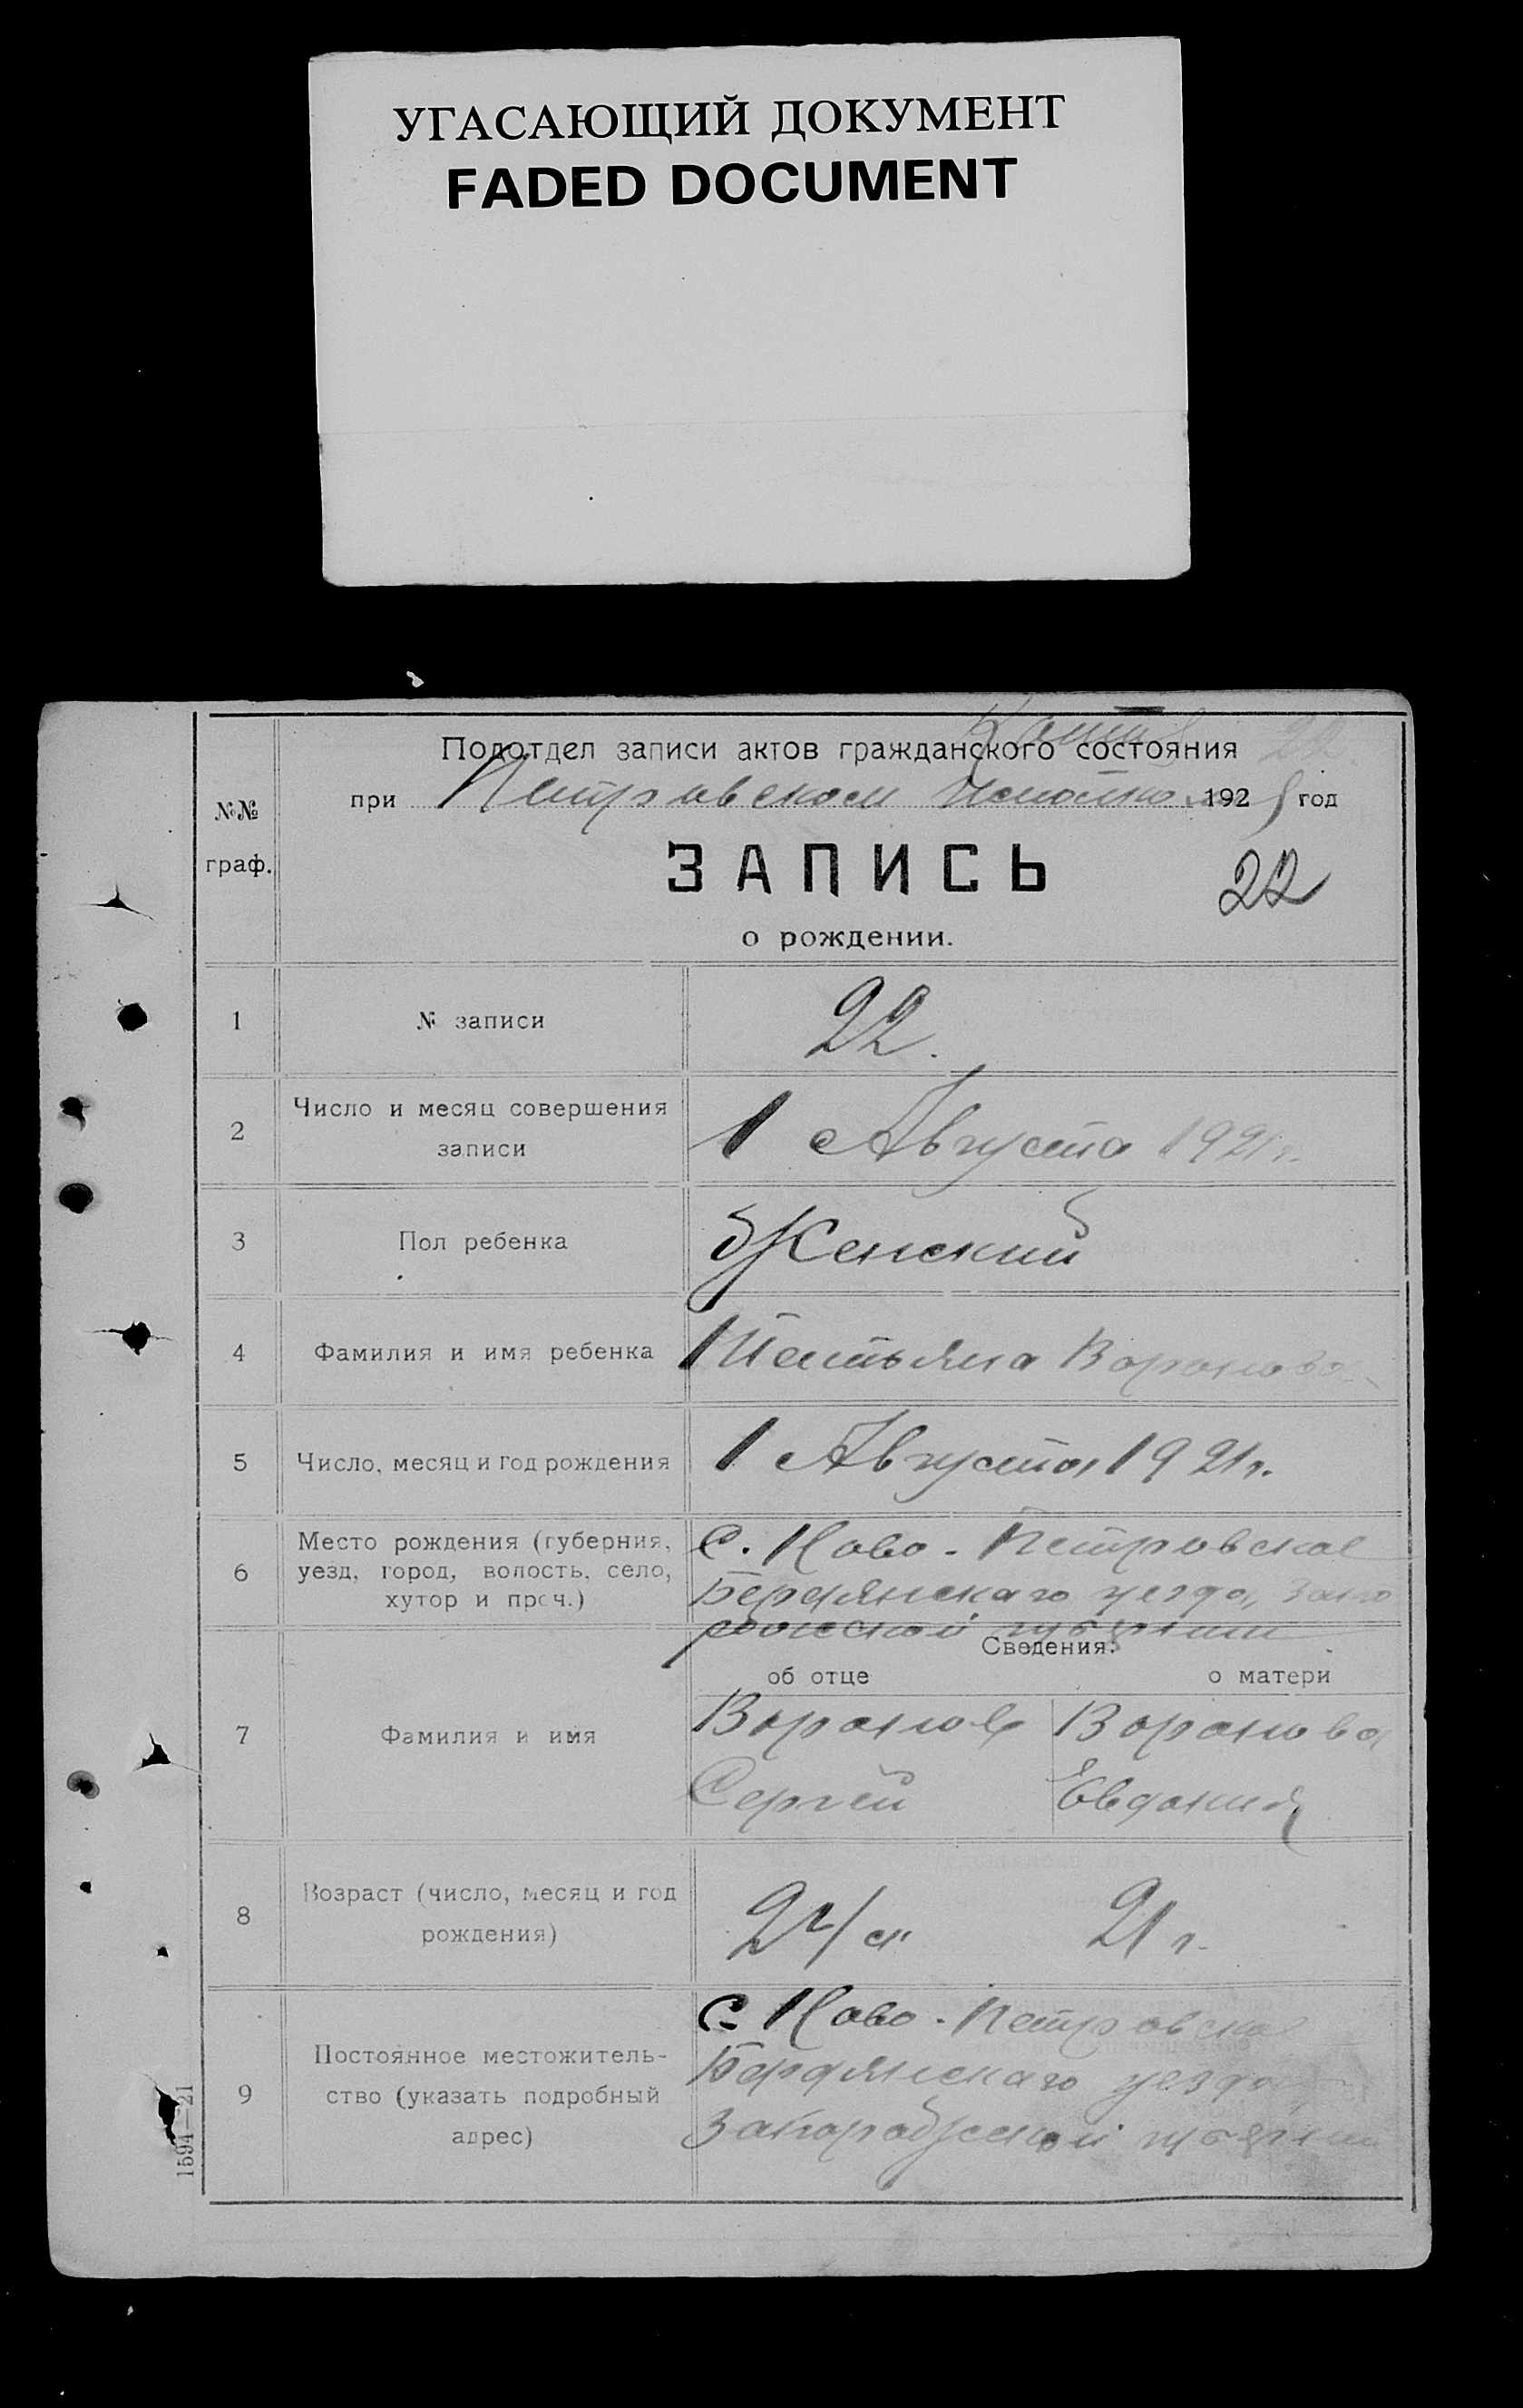 УГАСАЮЩИЙ ДОКУМЕНТ
FADED DOCUMENT
Подотдел записи актов гражданского состояния
при Петровском 192 год
№№
граф.
ЗАПИСЬ
22
о рождении.
1
№ записи
22.
2
Число и месяц совершения
записи
1 Августа 1921 г.
3
Пол ребенка
Женский
4
Фамилия и имя ребенка
Татьяна Воронова
5
Число, месяц и год рождения
1 Августа 1921 г.
6
Место рождения (губерния,
уезд, город, волость, село,
хутор и проч.)
С. Ново-Петровское
Бердянскаго уезда, Запо
рожской губернии
Сведения:
об отце
о матери
7
Фамилия и имя
Воронов
Воронова
Сергей
Евдокия
8
Возраст (число, месяц и год
рождения)
21 г.
9
Постоянное местожитель-
ство (указать подробный
адрес)
С. Ново-Петровское
Бердянскаго уезда
Запорожской губернии
1594—21